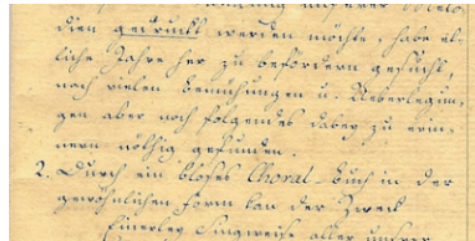 unserer Melo-
dien gedruckt werden möchte, habe et-
liche Jahre her zu befördern gesucht,
nach vielen bemühungen u. Ueberlegun-
gen aber noch folgendes dabey zu erin-
nern nöthig gefunden.
2. Durch ein bloses Choral-buch in der
gewöhnlichen form kan der Zweck
Einerley Singweise aller unsrer